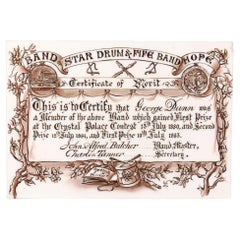 BAND STAR DRUM & FIFE BAND HOPE
Certificate of Merit
This is to Certify that George Dunn was
a Member of the above Band which gained First Prize
at the Crystal Palace Contest 13th July 1880, and Second
Prize 12th July 1881, and First Prize 10th July 1883.
John Alfred Butcher Band Master,
Charles Tanner Secretary.